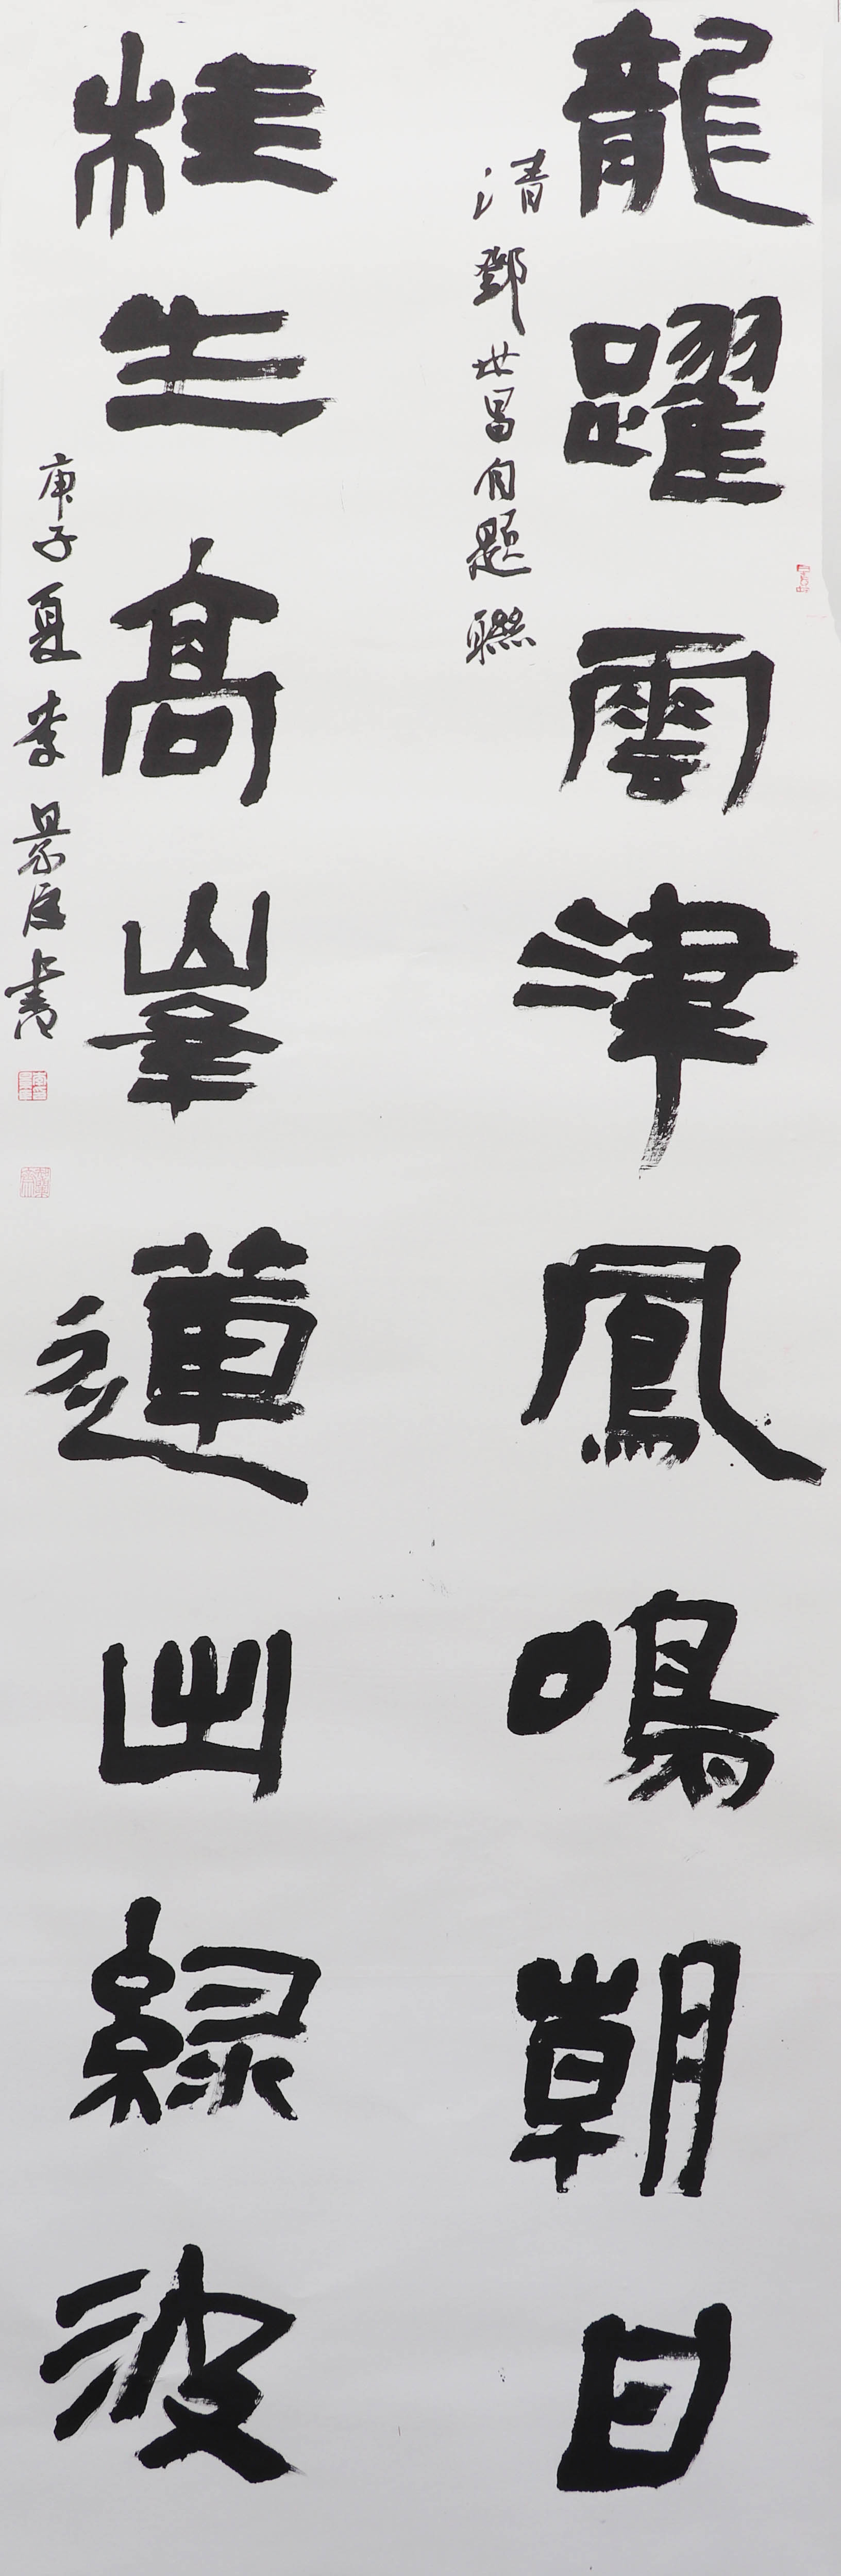 龍躍雲津鳳鳴朝日
清鄧世昌自題聯
桂生高峯蓮出緑波
庚子夏李景啟書